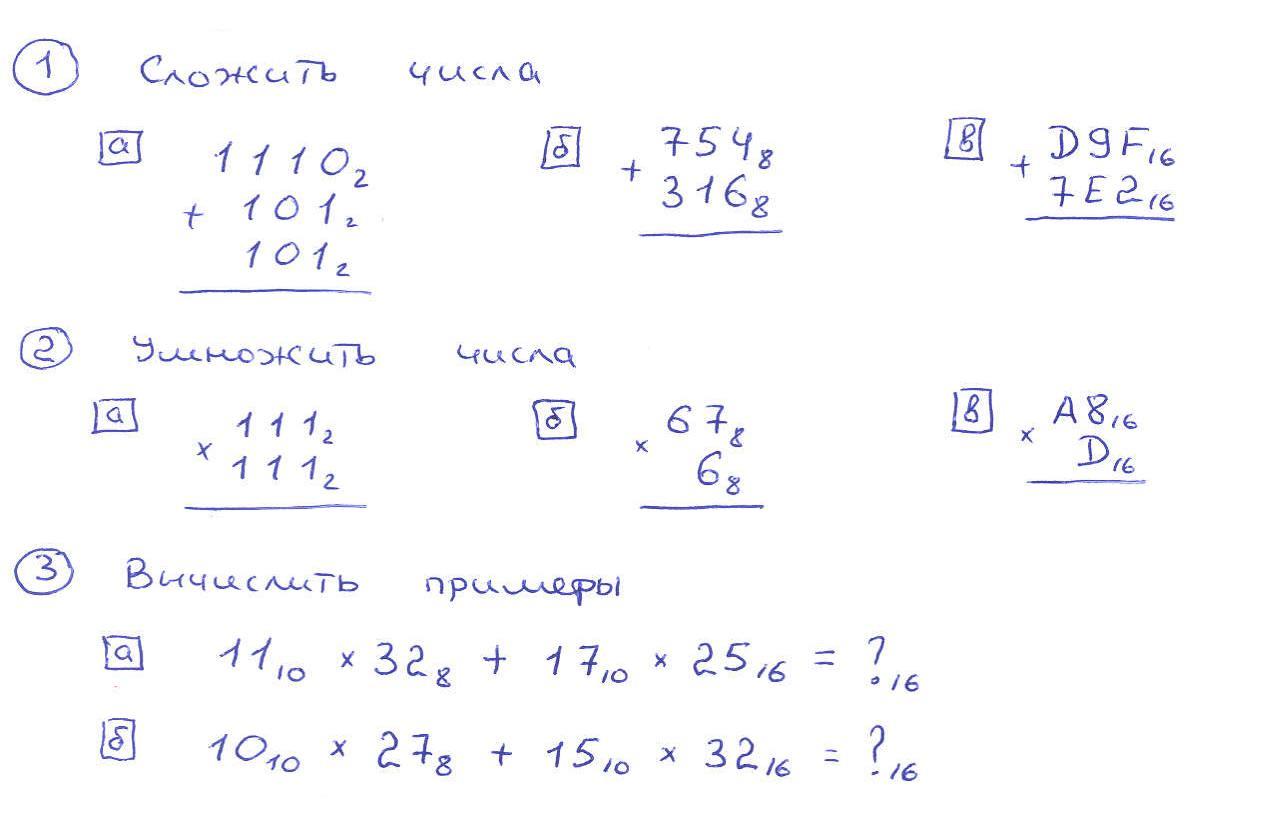 1 Сложить числа
а 1110₂ + 101₂ 101₂ б + 754₈ 316₈ в + D9F₁₆ 7E2₁₆
2 Умножить числа
а × 111₂ 111₂ б × 67₈ 6₈ в × A8₁₆ D₁₆
3 Вычислить примеры
а 11₁₀ × 32₈ + 17₁₀ × 25₁₆ = ?₁₆
б 10₁₀ × 27₈ + 15₁₀ × 32₁₆ = ?₁₆